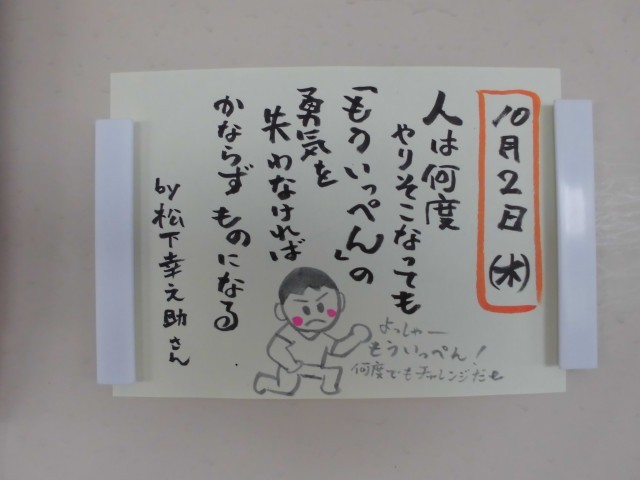 10月2日(木)
人は何度
やりそこなっても
「もういっぺん」の
勇気を
失わなければ
かならずものになる
by 松下幸之助さん
よっしゃー
もういっぺん!
何度でもチャレンジだぜ